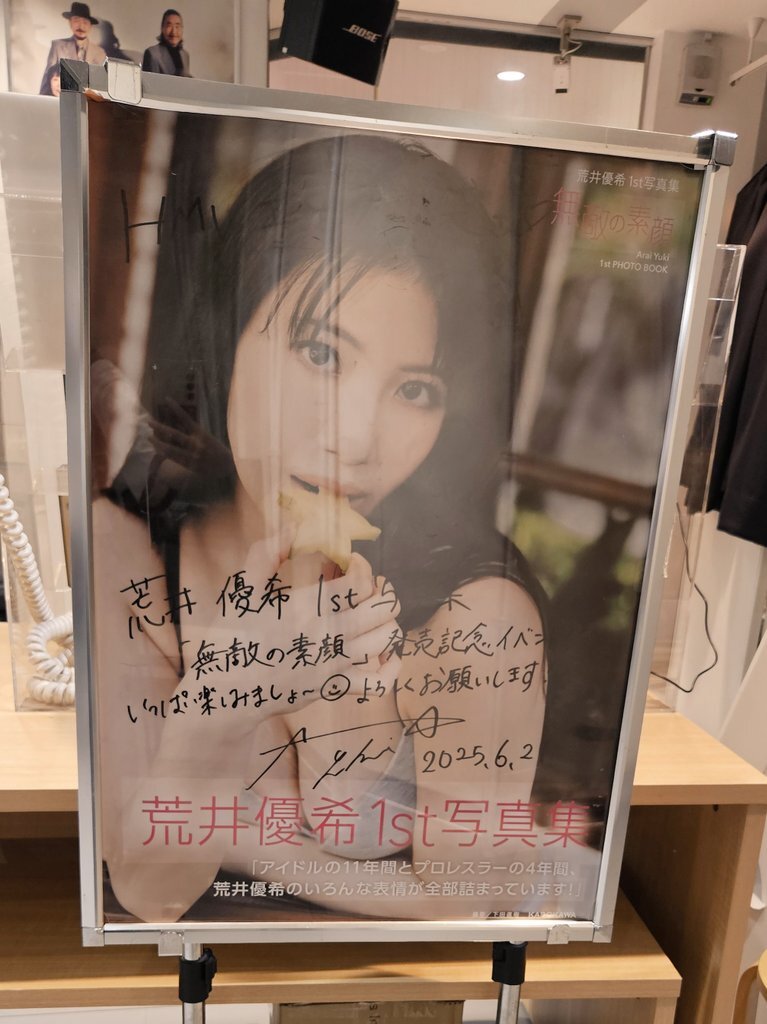 BOSE
荒井優希 1st写真集
無敵の素顔
Arai Yuki
1st PHOTO BOOK
荒井 優希 1st 写
「無敵の素顔」発売記念イベン
いっぱい楽しみましょ〜 よろしくお願いします
2025.6.2
荒井優希 1st写真集
「アイドルの11年間とプロレスラーの4年間、
荒井優希のいろんな表情が全部詰まっています!」
KADOKAWA